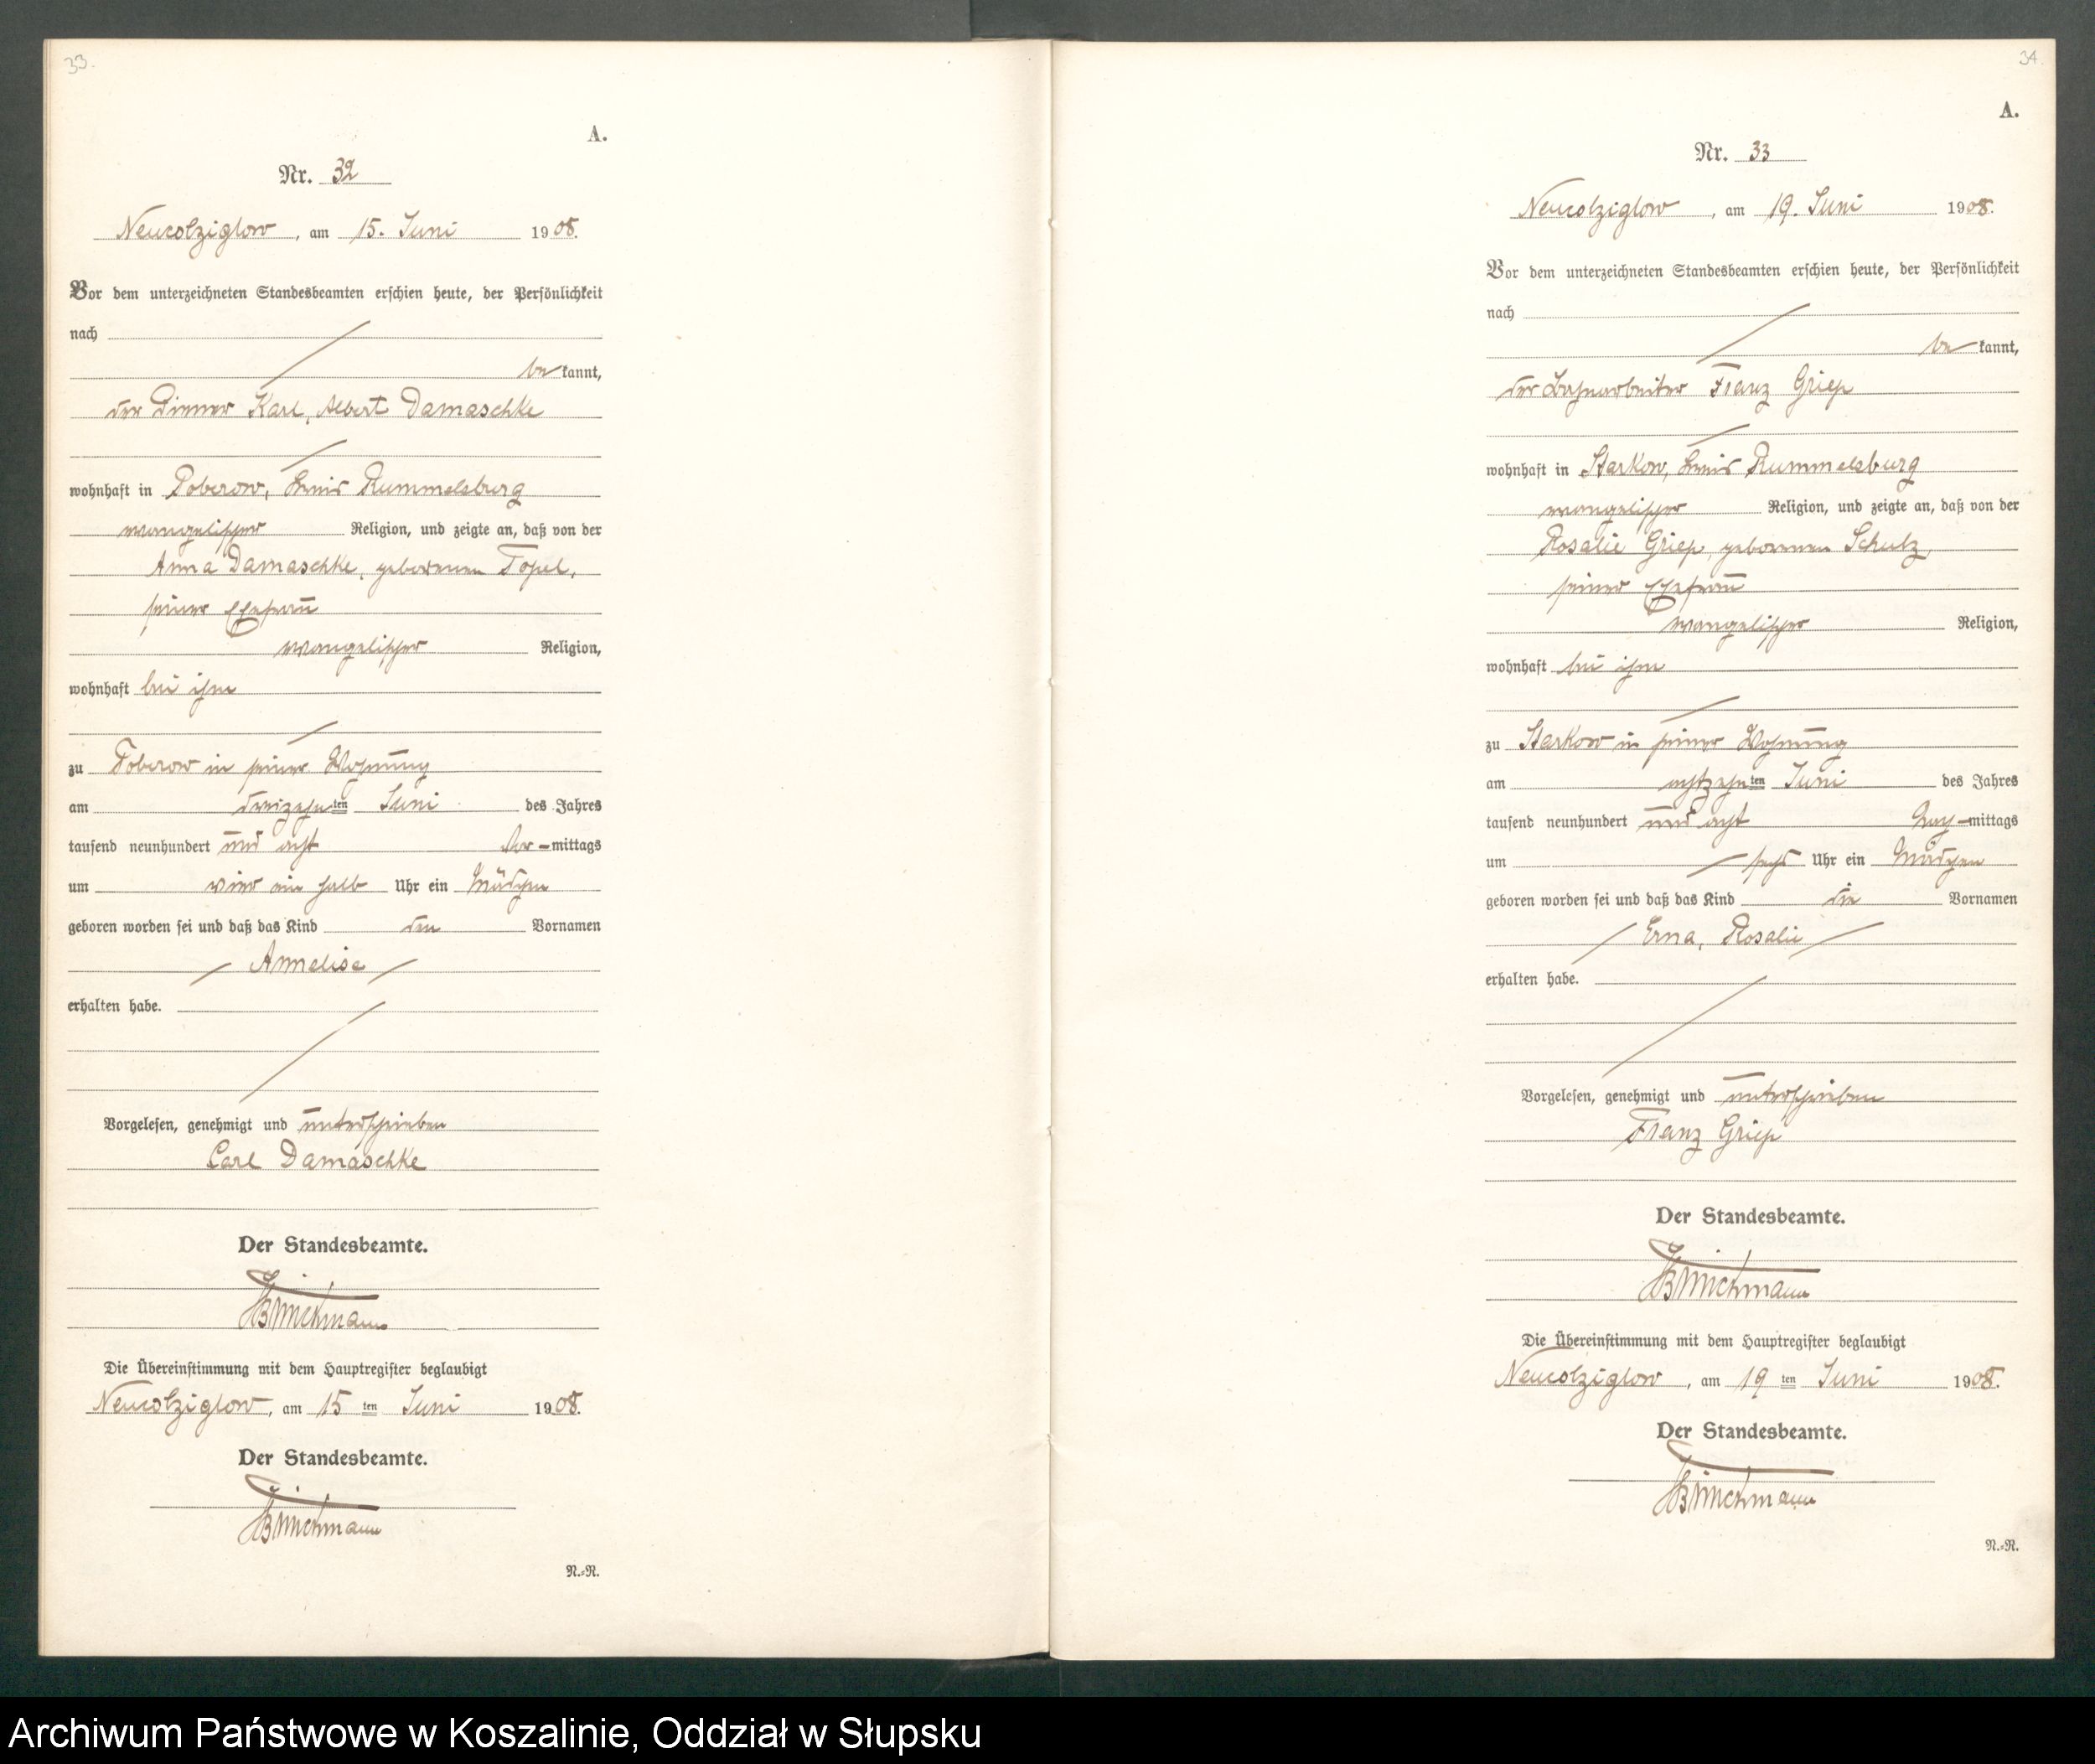 33.
A.
Nr. 32
Neukolziglow, am 15. Juni 1908.
Vor dem unterzeichneten Standesbeamten erschien heute, der Persönlichkeit
nach
be kannt,
der Diener Karl, Albert Damaschke
wohnhaft in Poberow, Kreis Rummelsburg
evangelischer Religion, und zeigte an, daß von der
Anna Damaschke, geborenen Topel,
seiner Ehefrau
evangelischer Religion,
wohnhaft bei ihm
zu Poberow in seiner Wohnung
am dreizehnten Juni des Jahres
tausend neunhundert und acht Vor-mittags
um vier ein halb Uhr ein Mädchen
geboren worden sei und daß das Kind den Vornamen
Annelise
erhalten habe.
Vorgelesen, genehmigt und unterschrieben
Carl Damaschke
Der Standesbeamte.
Die Übereinstimmung mit dem Hauptregister beglaubigt
Neukolziglow, am 15 ten Juni 1908.
Der Standesbeamte.
N.-R.
34.
A.
Nr. 33
Neukolziglow, am 19. Juni 1908.
Vor dem unterzeichneten Standesbeamten erschien heute, der Persönlichkeit
nach
be kannt,
der Franz Griep
wohnhaft in Starkow, Kreis Rummelsburg
evangelischer Religion, und zeigte an, daß von der
Rosalie Griep, geborenen Schulz,
seiner Ehefrau
evangelischer Religion,
wohnhaft bei ihm
zu Starkow in seiner Wohnung
am achtzehnten Juni des Jahres
tausend neunhundert und acht Nach-mittags
um sechs Uhr ein Mädchen
geboren worden sei und daß das Kind die Vornamen
Erna, Rosalie
erhalten habe.
Vorgelesen, genehmigt und unterschrieben
Franz Griep
Der Standesbeamte.
Die Übereinstimmung mit dem Hauptregister beglaubigt
Neukolziglow, am 19 ten Juni 1908.
Der Standesbeamte.
N.-R.
Archiwum Państwowe w Koszalinie, Oddział w Słupsku